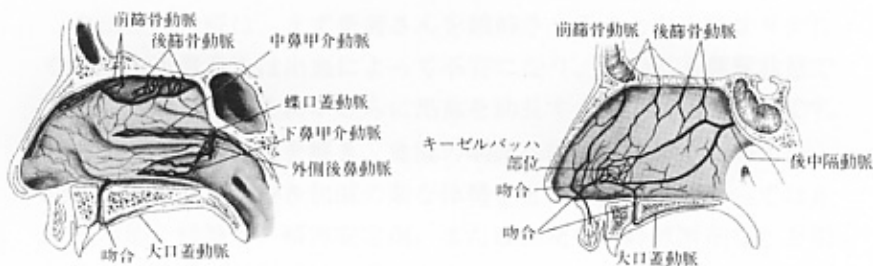 前篩骨動脈
後篩骨動脈
中鼻甲介動脈
蝶口蓋動脈
下鼻甲介動脈
外側後鼻動脈
大口蓋動脈
吻合
前篩骨動脈
後篩骨動脈
キーゼルバッハ
部位
吻合
吻合
後中隔動脈
大口蓋動脈